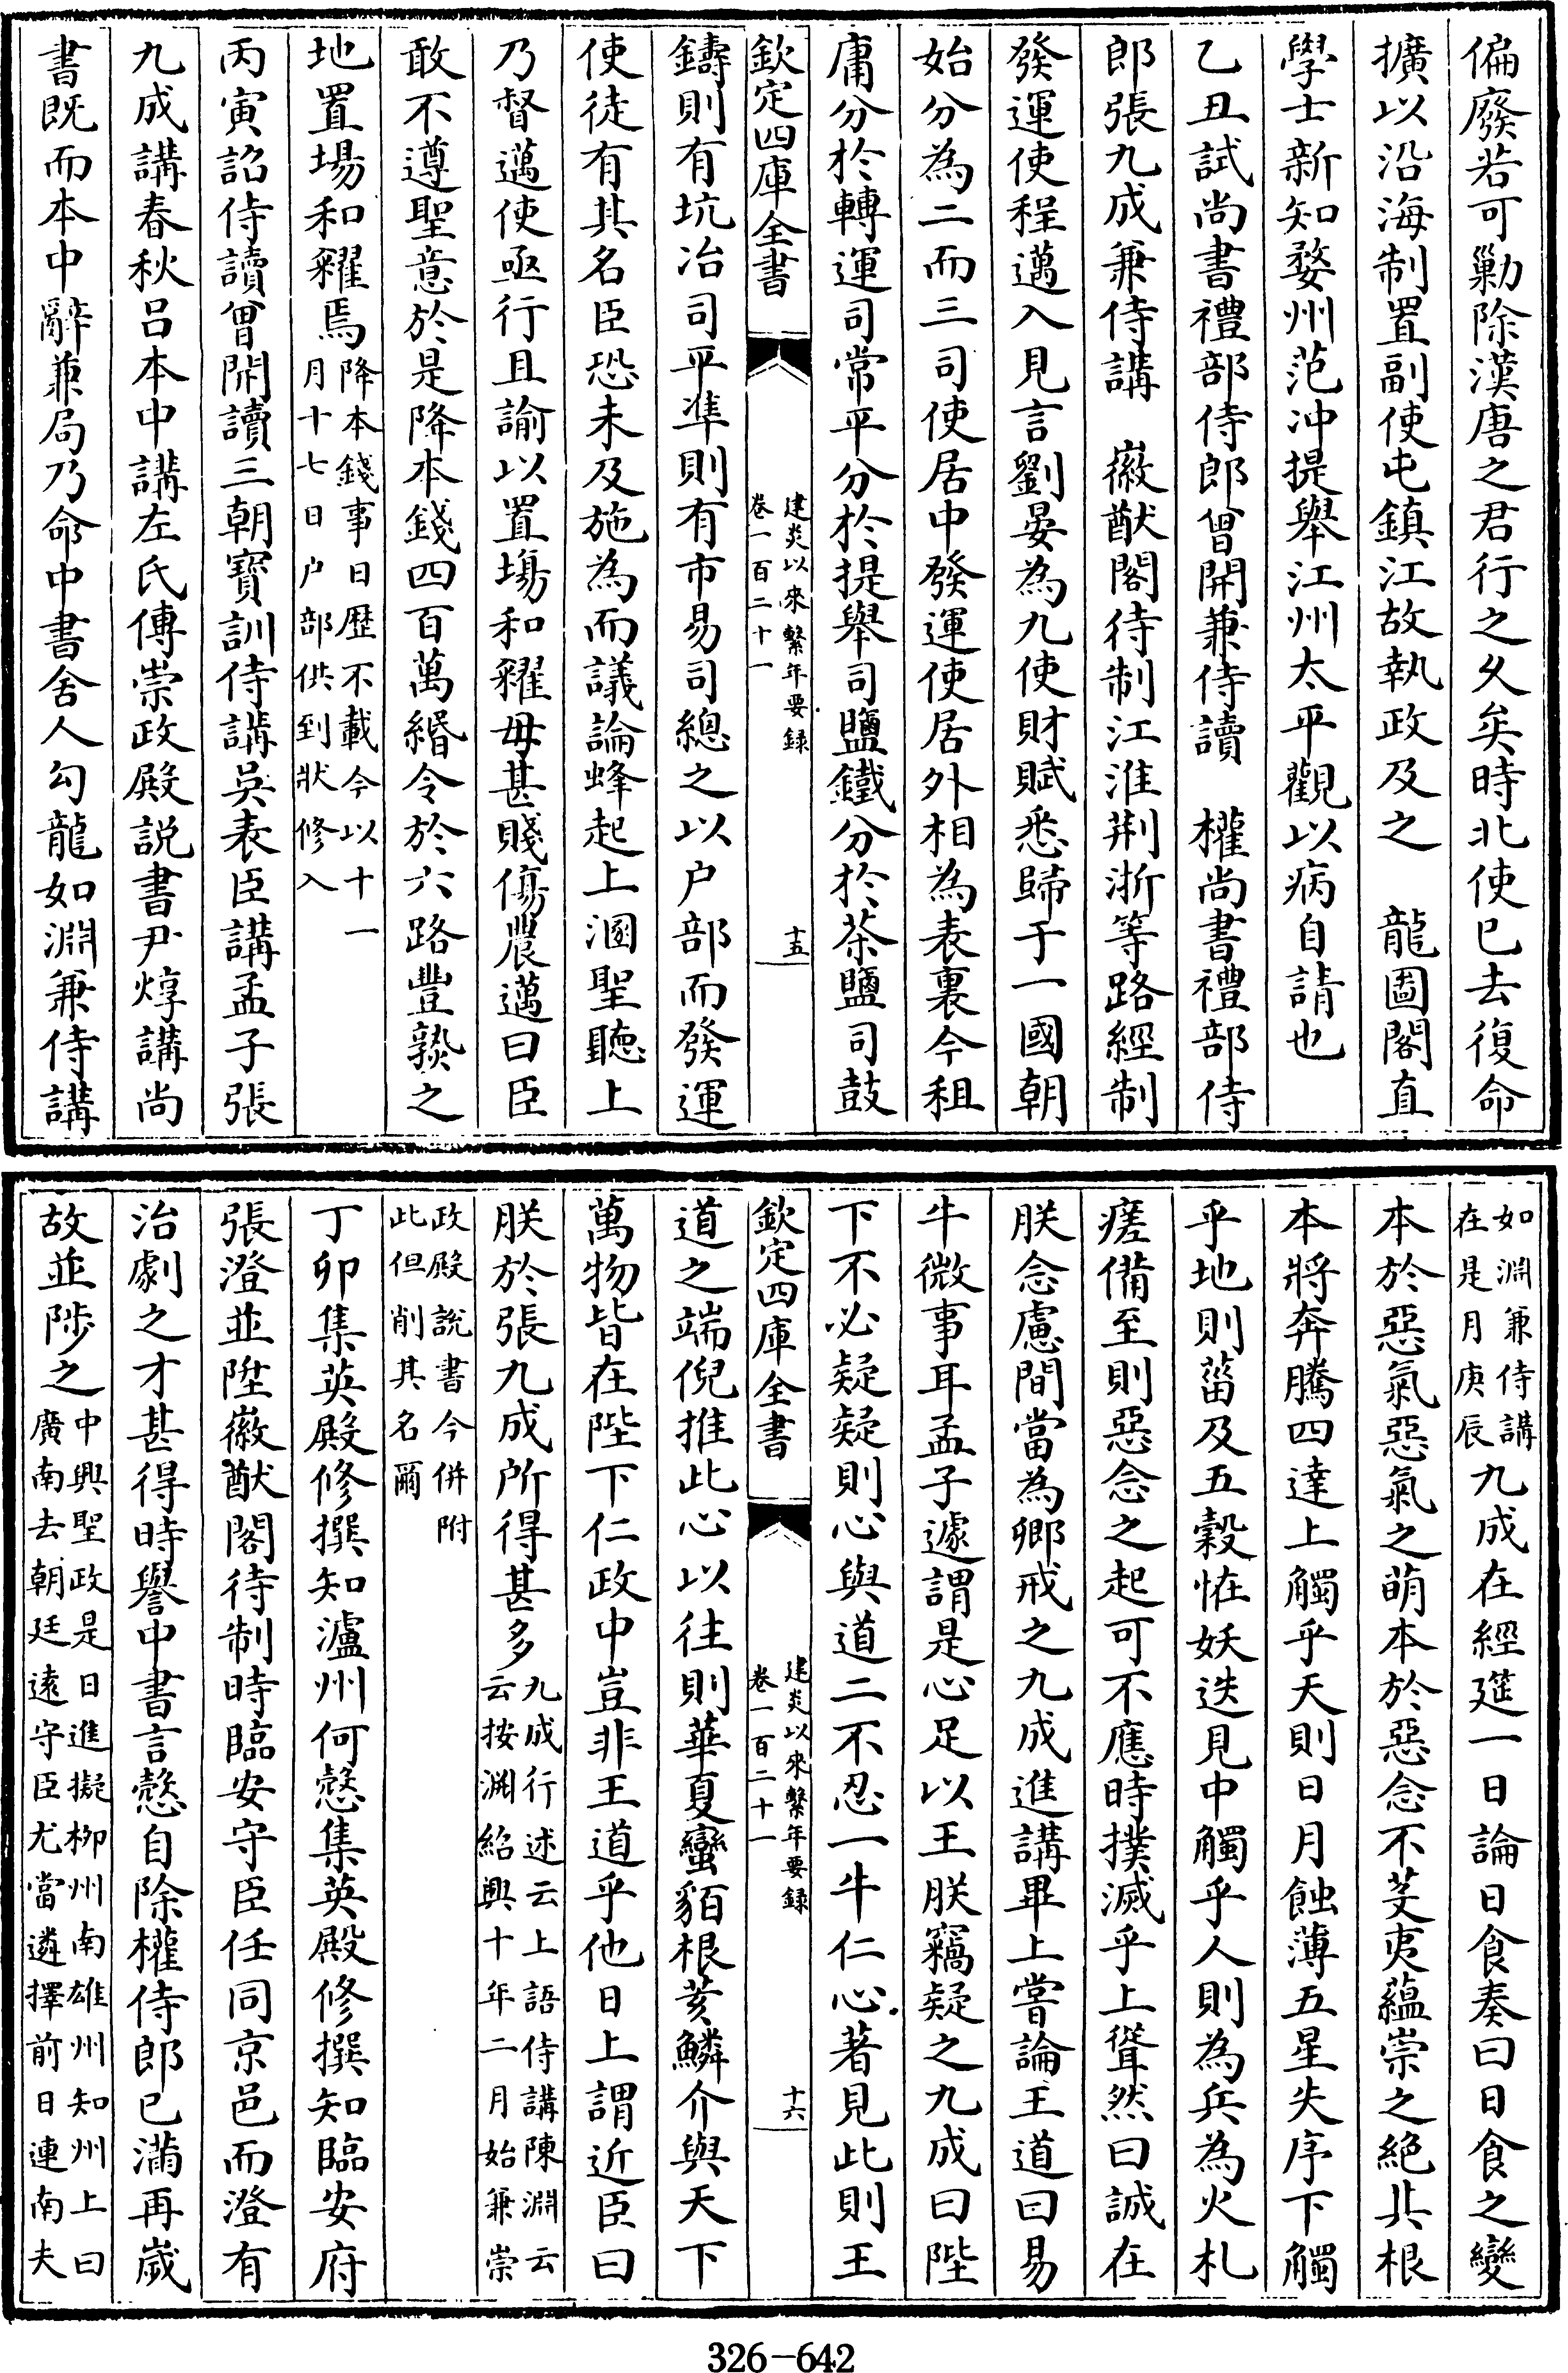 偏廢若可勦除漢唐之君行之久矣時北使已去復命
擴以沿海制置副使屯鎮江故執政及之　龍圖閣直
學士新知婺州范冲提舉江州太平觀以病自請也
乙丑試尚書禮部侍郎曾開兼侍讀　權尚書禮部侍
郎張九成兼侍講　徽猷閣待制江淮荆浙等路經制
發運使程邁入見言劉晏為九使財賦悉歸于一國朝
始分為二而三司使居中發運使居外相為表裏今租
庸分於轉運司常平分於提舉司鹽鐵分於茶鹽司鼓
欽定四庫全書
建炎以來繫年要録
卷一百二十一
十五
鑄則有坑冶司平準則有市易司總之以户部而發運
使徒有其名臣恐未及施為而議論蜂起上溷聖聽上
乃督邁使亟行且諭以置塲和糴毋甚賤傷農邁曰臣
敢不遵聖意於是降本錢四百萬緡令於六路豐熟之
地置場和糴焉降本錢事日歴不載今以十一
月十七日户部供到狀修入
丙寅詔侍讀曾開讀三朝寶訓侍講吳表臣講孟子張
九成講春秋吕本中講左氏傳崇政殿説書尹焞講尚
書既而本中辭兼局乃命中書舍人勾龍如淵兼侍講
如淵兼侍講
在是月庚辰九成在經筵一日論日食奏曰日食之變
本於惡氣惡氣之萌本於惡念不芟夷蘊崇之絶其根
本將奔騰四達上觸乎天則日月蝕薄五星失序下觸
乎地則菑及五穀恠妖迭見中觸乎人則為兵為火札
瘥備至則惡念之起可不應時撲滅乎上聳然曰誠在
朕念慮間當為卿戒之九成進講畢上嘗論王道曰易
牛微事耳孟子遽謂是心足以王朕竊疑之九成曰陛
下不必疑疑則心與道二不忍一牛仁心著見此則王
欽定四庫全書
建炎以來繫年要録
卷一百二十一
十六
道之端倪推此心以往則華夏蠻貊根荄鱗介與天下
萬物皆在陛下仁政中豈非王道乎他日上謂近臣曰
朕於張九成所得甚多九成行述云上語侍講陳淵云
云按淵紹興十年二月始兼崇
政殿説書今併附
此但削其名爾
丁卯集英殿修撰知瀘州何慤集英殿修撰知臨安府
張澄並陞徽猷閣待制時臨安守臣任同京邑而澄有
治劇之才甚得時譽中書言慤自除權侍郎已滿再歲
故並陟之中興聖政是日進擬栁州南雄州知州上曰
廣南去朝廷遠守臣尤當遴擇前日連南夫
326-642